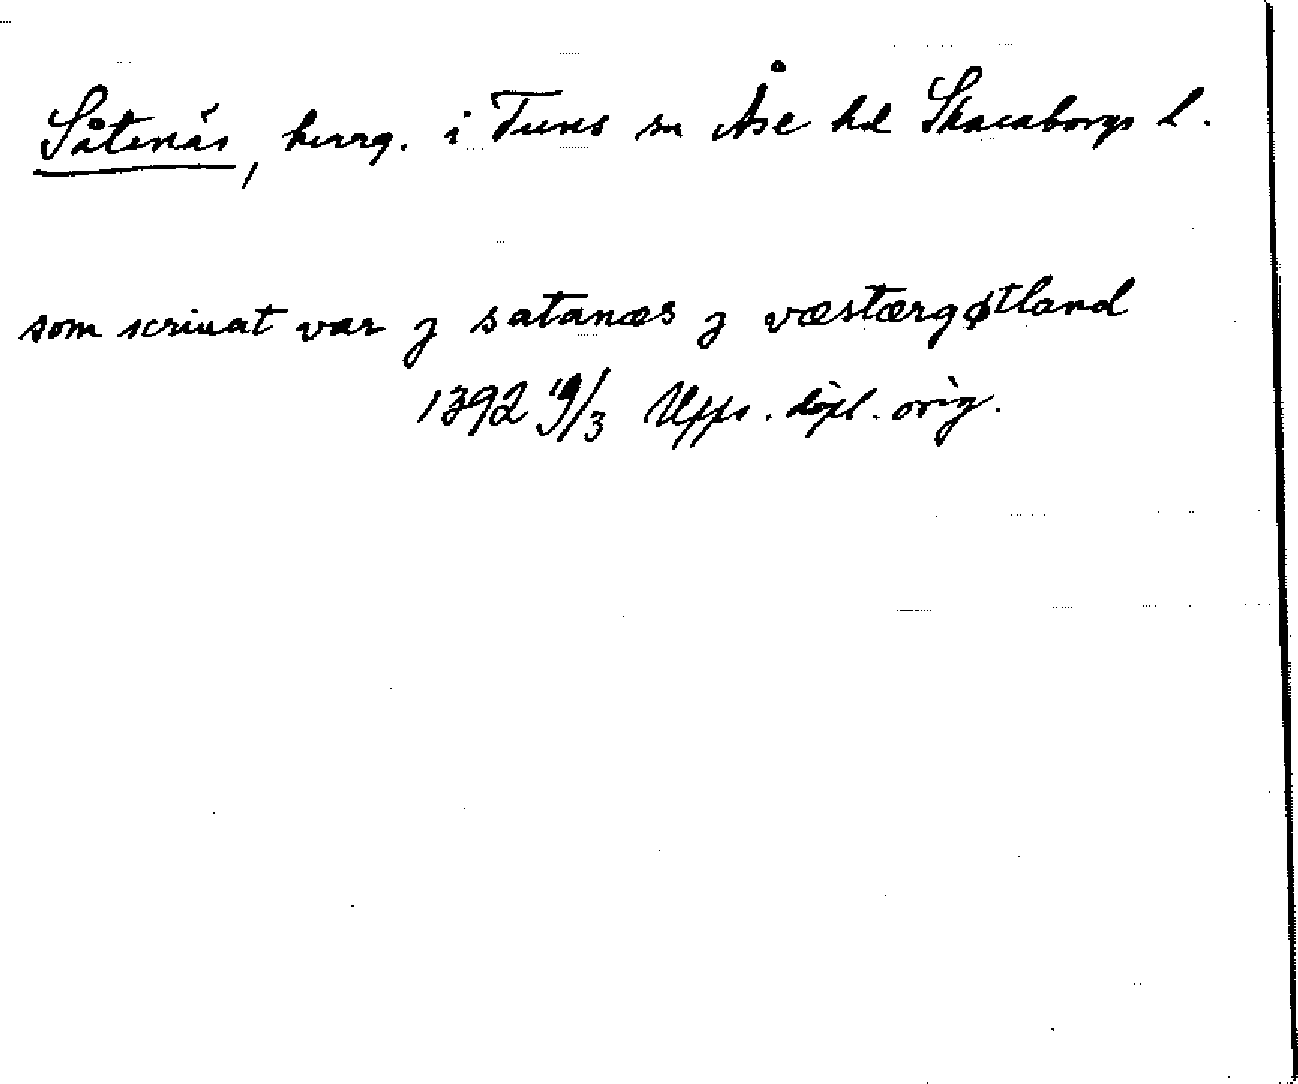 Såtenäs, herrg. i Tuns sn Åse hd Skaraborgs l.
som scriuat var j satanæs j væstærgøtland
1392 /3 Upps. dipl. orig.